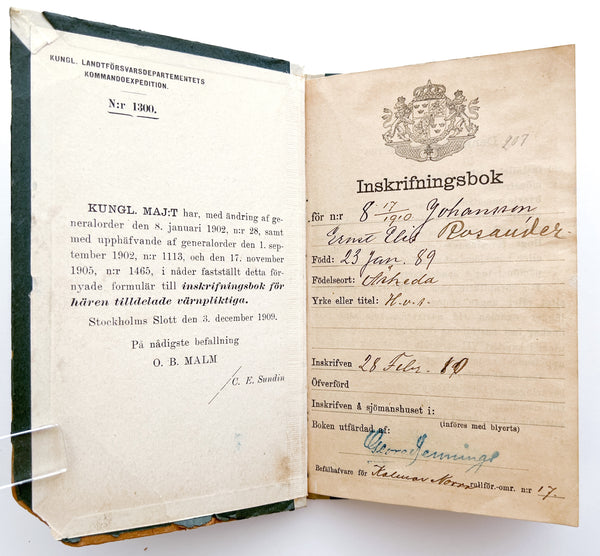 KUNGL. LANDTFÖRSVARSDEPARTEMENTETS
KOMMANDOEXPEDITION.
N:r 1300.
KUNGL. MAJ:T har, med ändring af ge-
neralorder den 8. januari 1902, n:r 28, samt
med upphäfvande af generalorder den 1. sep-
tember 1902, n:r 1113, och den 17. november
1905, n:r 1465, i nåder fastställt detta för-
nyade formulär till inskrifningsbok för
hären tilldelade värnpliktiga.
Stockholms Slott den 3. december 1909.
På nådigste befallning
O. B. MALM
/C. E. Sundin
207
Inskrifningsbok
för n:r 8 17/1910 Johansson
Ernst Elis Rosander
Född: 23 Jan. 89
Födelseort: Åsheda
Yrke eller titel: H.v.s.
Inskrifven 28 Febr.
Öfverförd
Inskrifven å sjömanshuset i:
(införes med blyerts)
Boken utfärdad af:
Georg Jennings
Befälhafvare för Kalmar Norra rullför.-omr. n:r 17.